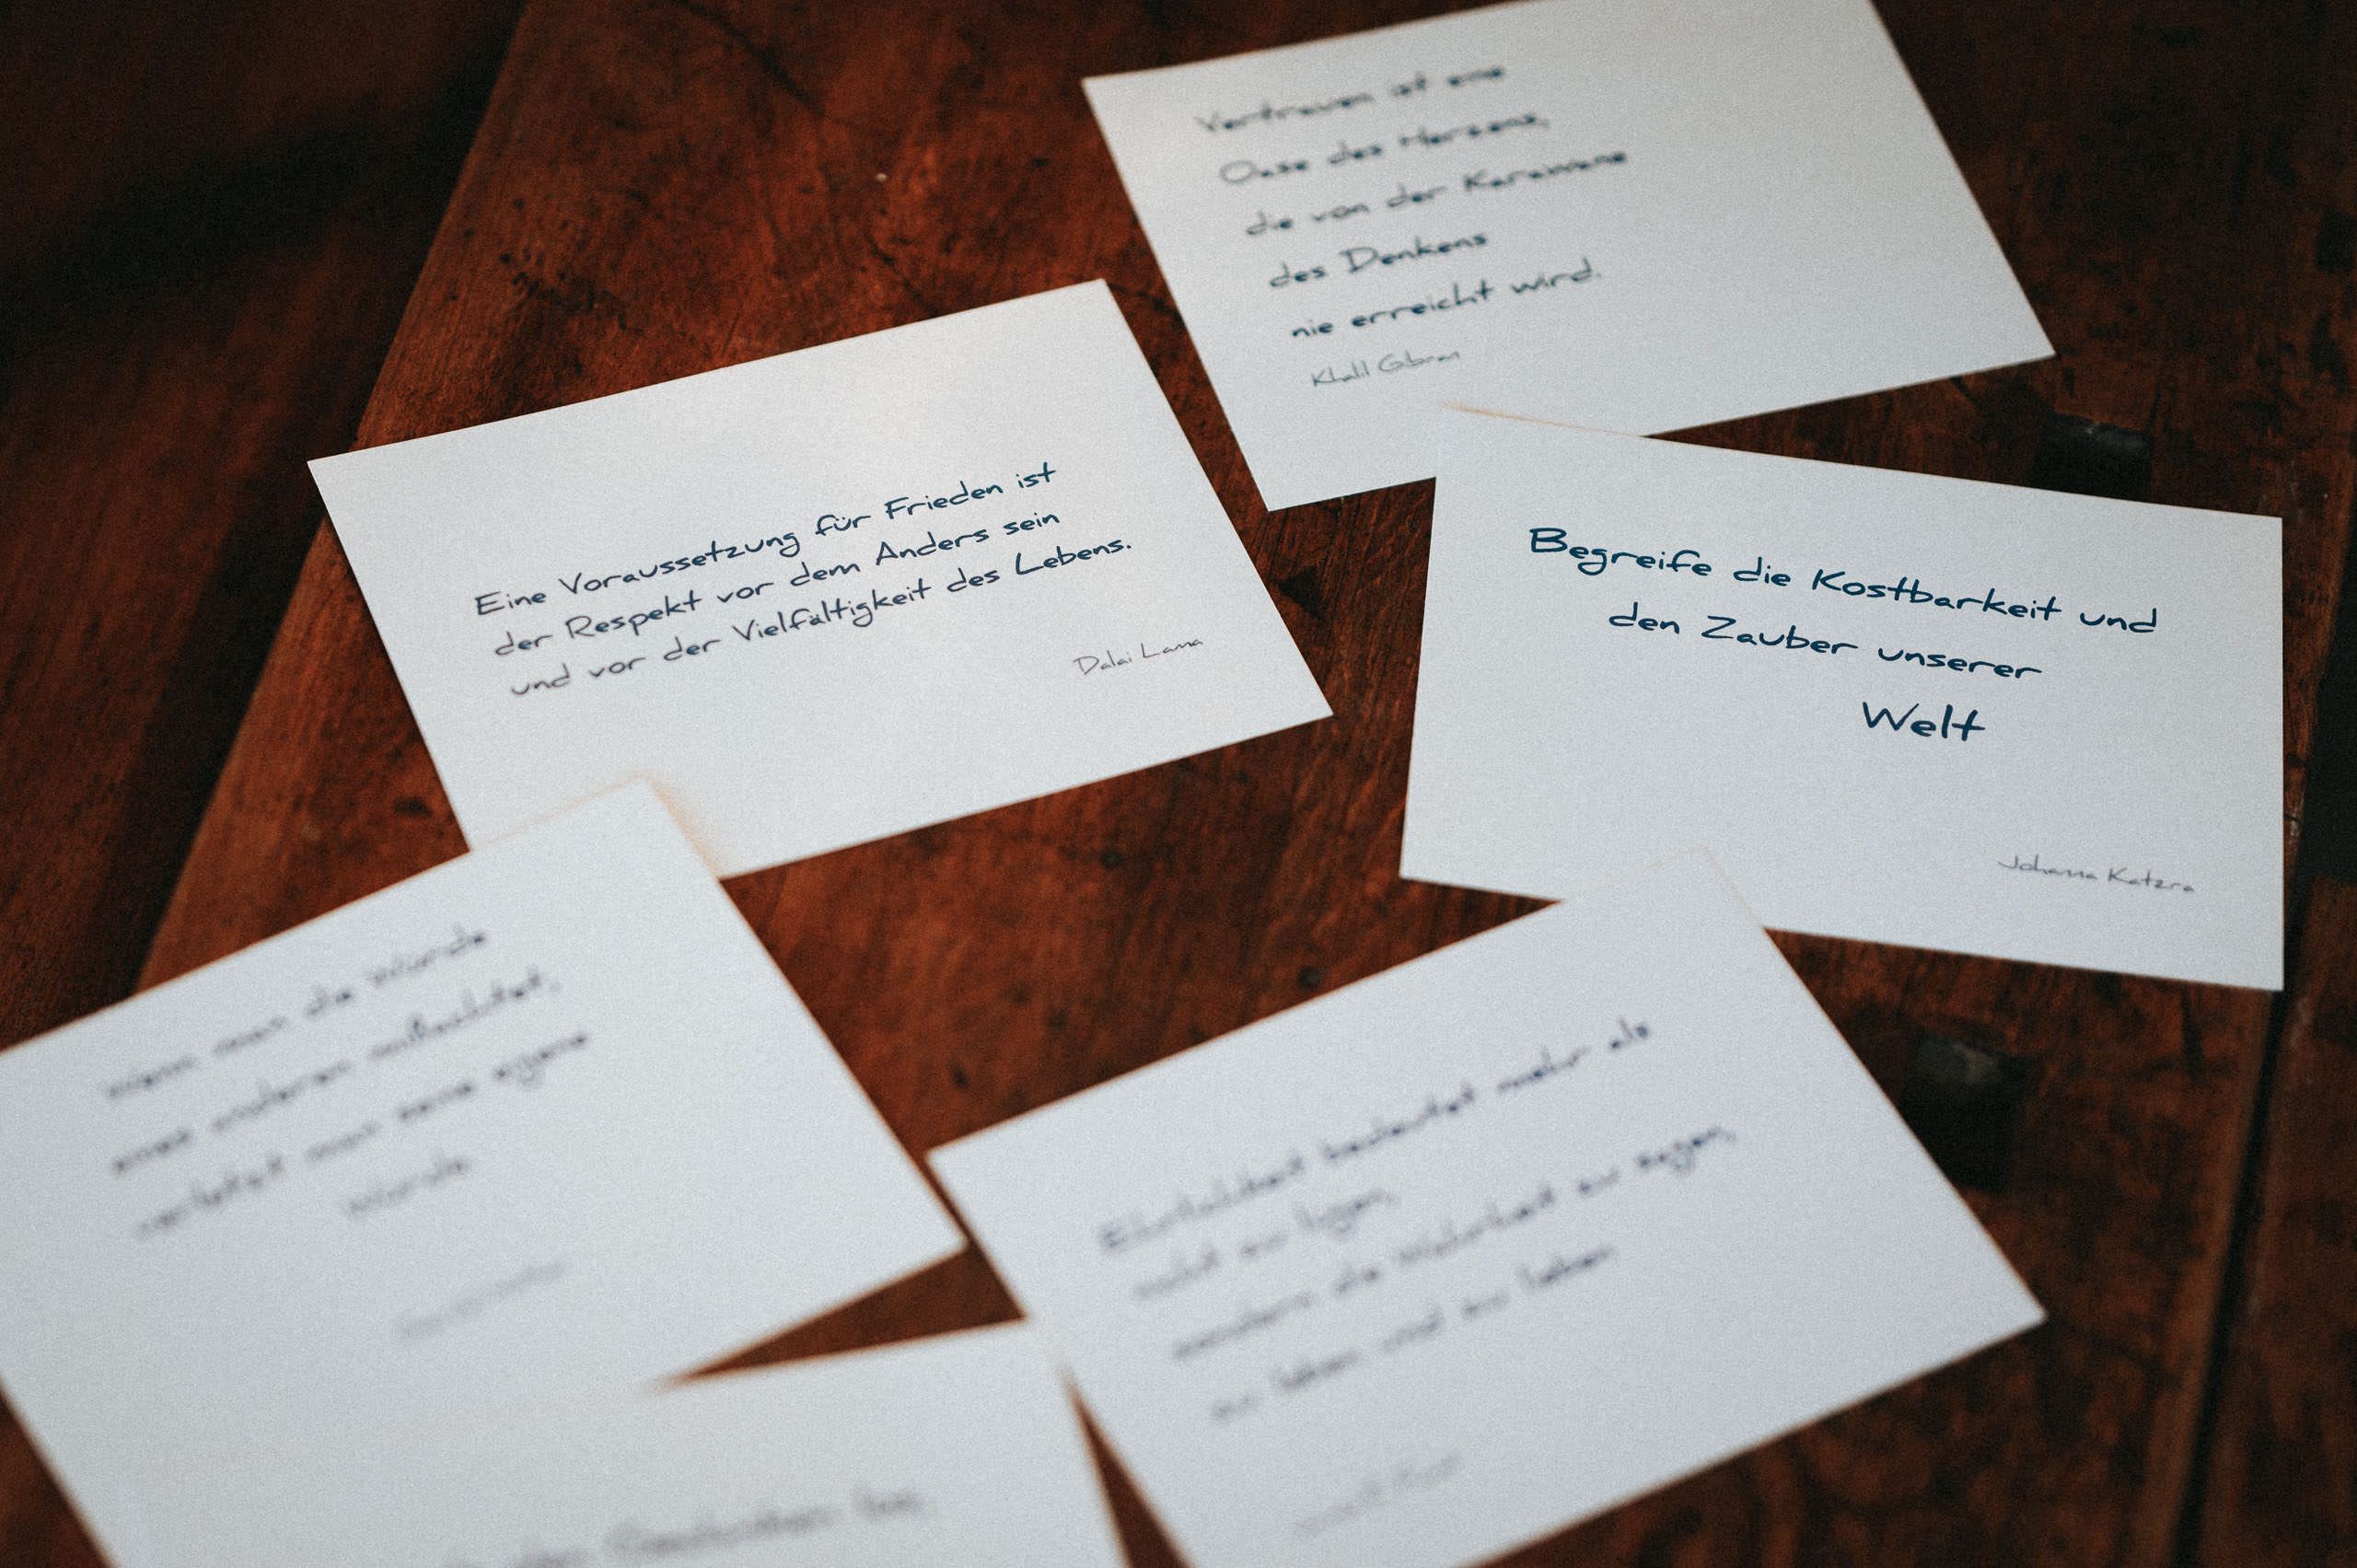 Vertrauen ist eine
Oase des Herzens,
die von der Karawane
des Denkens
nie erreicht wird.
Khalil Gibran
Eine Voraussetzung für Frieden ist
der Respekt vor dem Anders sein
und vor der Vielfältigkeit des Lebens.
Dalai Lama
Begreife die Kostbarkeit und
den Zauber unserer
Welt
Johanna Katzra
Wenn man die Würde
eines anderen mißachtet,
verletzt man seine eigene
Würde
Ehrlichkeit bedeutet mehr als
nicht zu lügen,
sondern die Wahrheit zu sagen,
zu leben und zu lieben